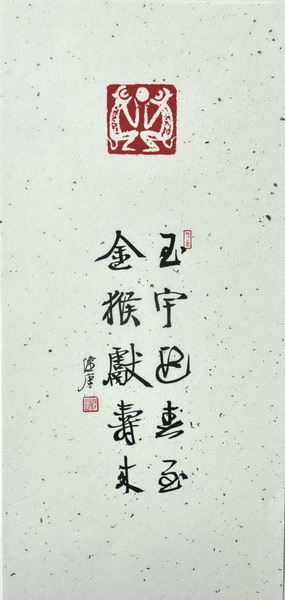 玉宇迎春至
金猴獻壽来